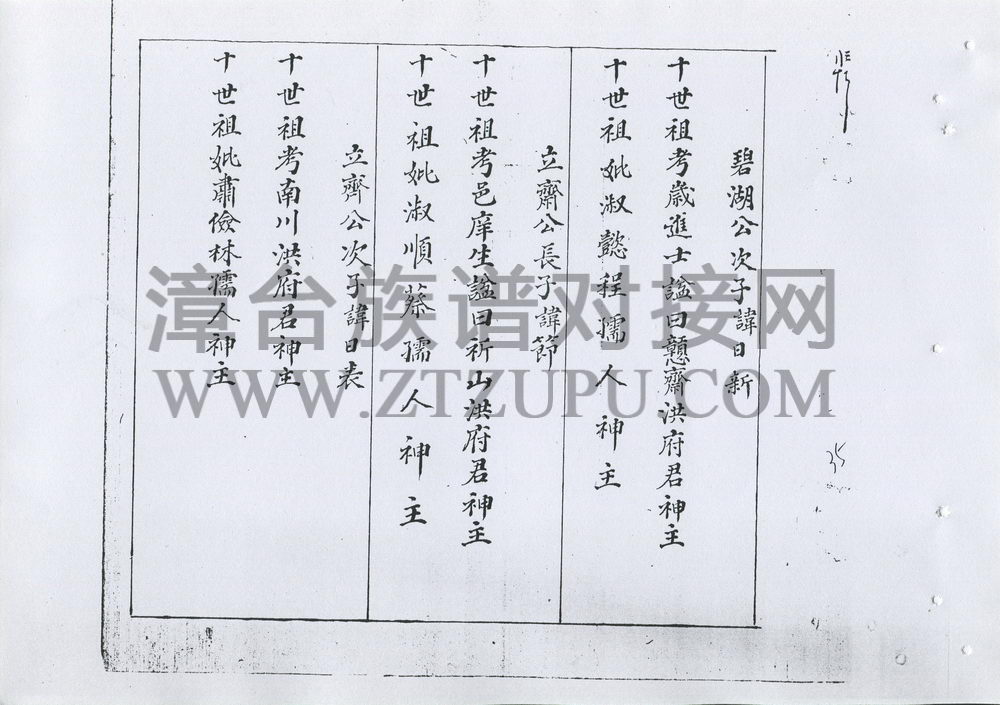 碧湖公次子諱日新
十世祖考歲進士諡曰戇齋洪府君神主
十世祖妣淑懿程孺人神主
立齋公長子諱節
十世祖考邑庠生諡曰祈山洪府君神主
十世祖妣淑順蔡孺人神主
立齊公次子諱日表
十世祖考南川洪府君神主
十世祖妣肅儉林孺人神主
35
漳台族谱对接网
WWW.ZTZUPU.COM